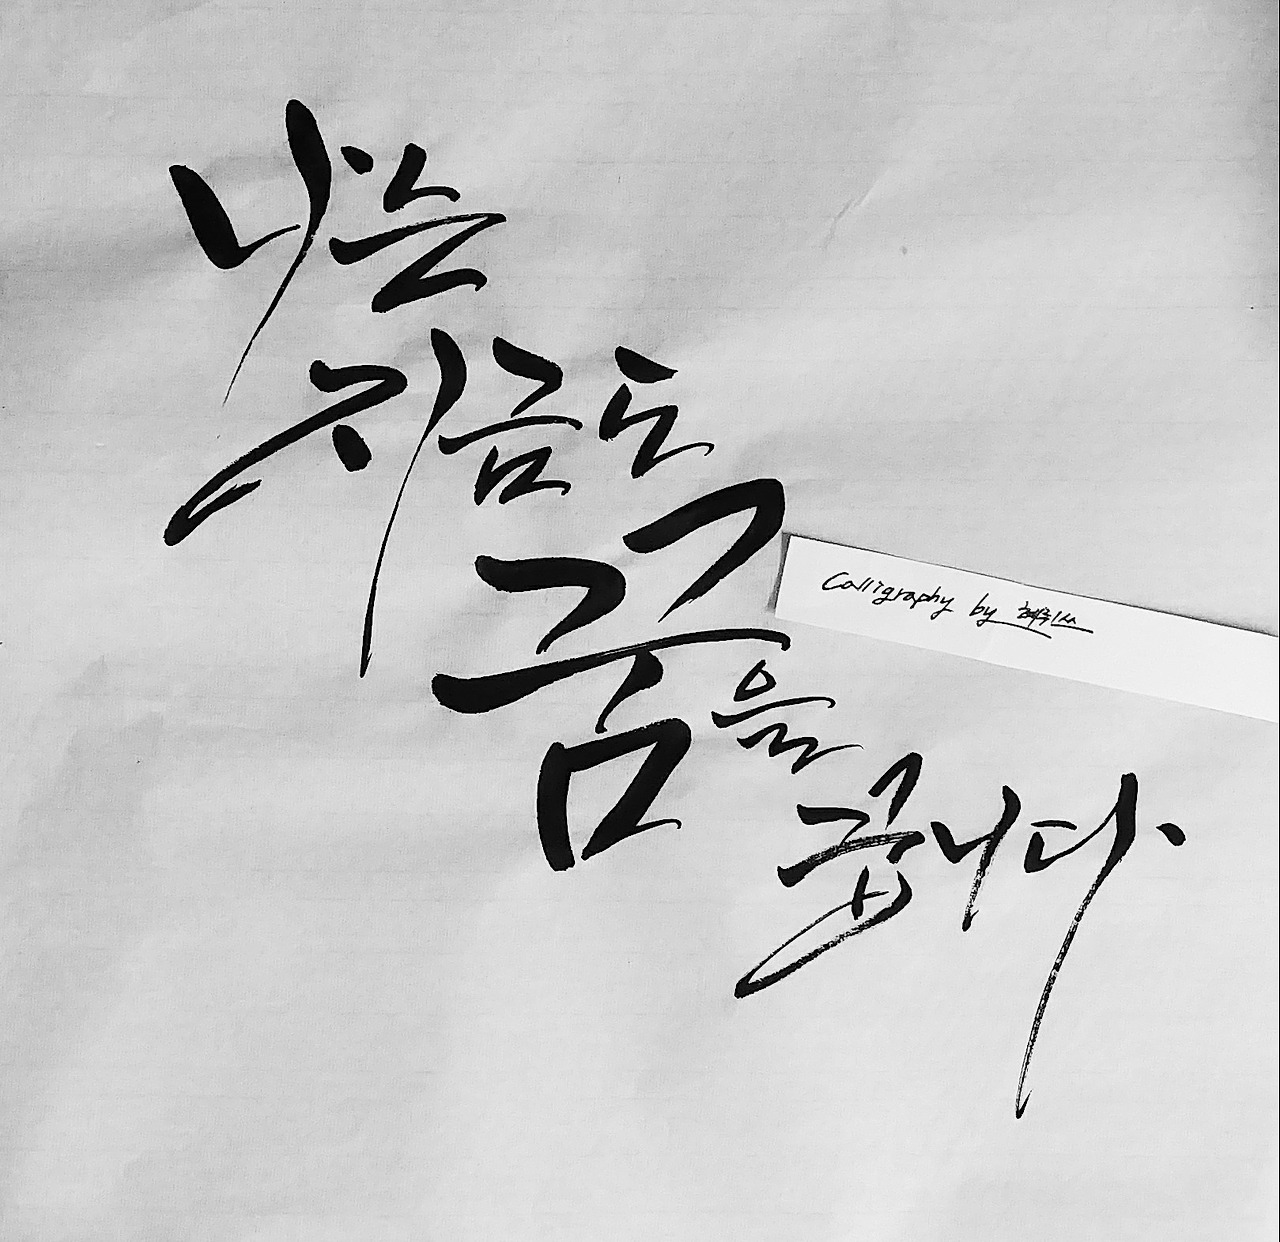 나는
지금도
꿈을
꿉니다.
Calligraphy by